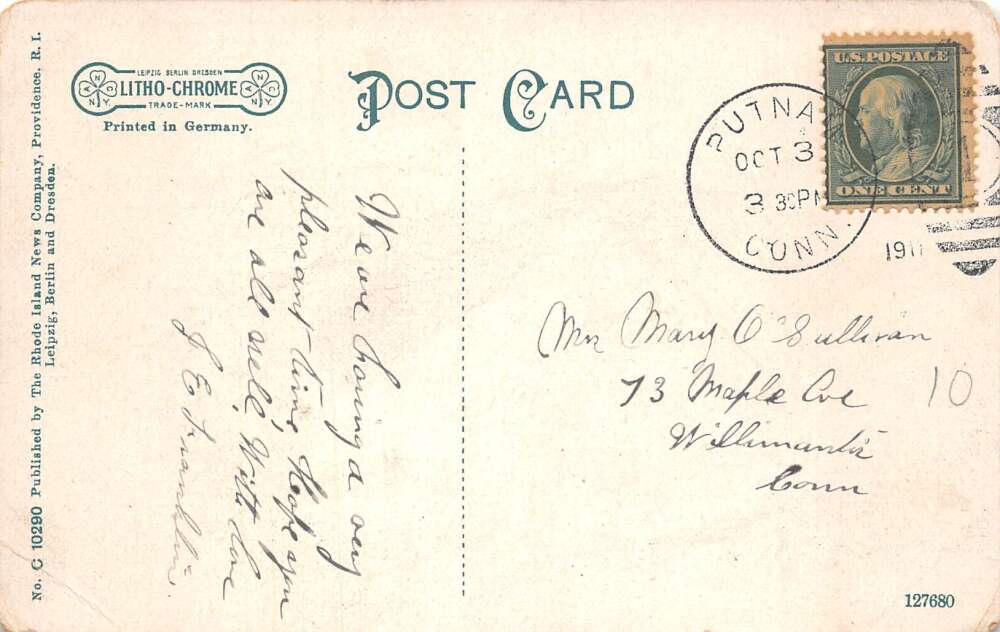 No. C 10290 Published by The Rhode Island News Company, Providence, R. I.
Leipzig, Berlin and Dresden.
LEIPZIG BERLIN DRESDEN
LITHO-CHROME
TRADE-MARK
Printed in Germany.
POST CARD
U.S. POSTAGE
ONE CENT
PUTNAM
OCT 3
3 30PM
CONN.
191
We are having a very
pleasant time, Hope you
are all well, With love
J E Franklin.
Mrs Mary O'Sullivan
73 Maple Ave
Willimantic
Conn
10
127680